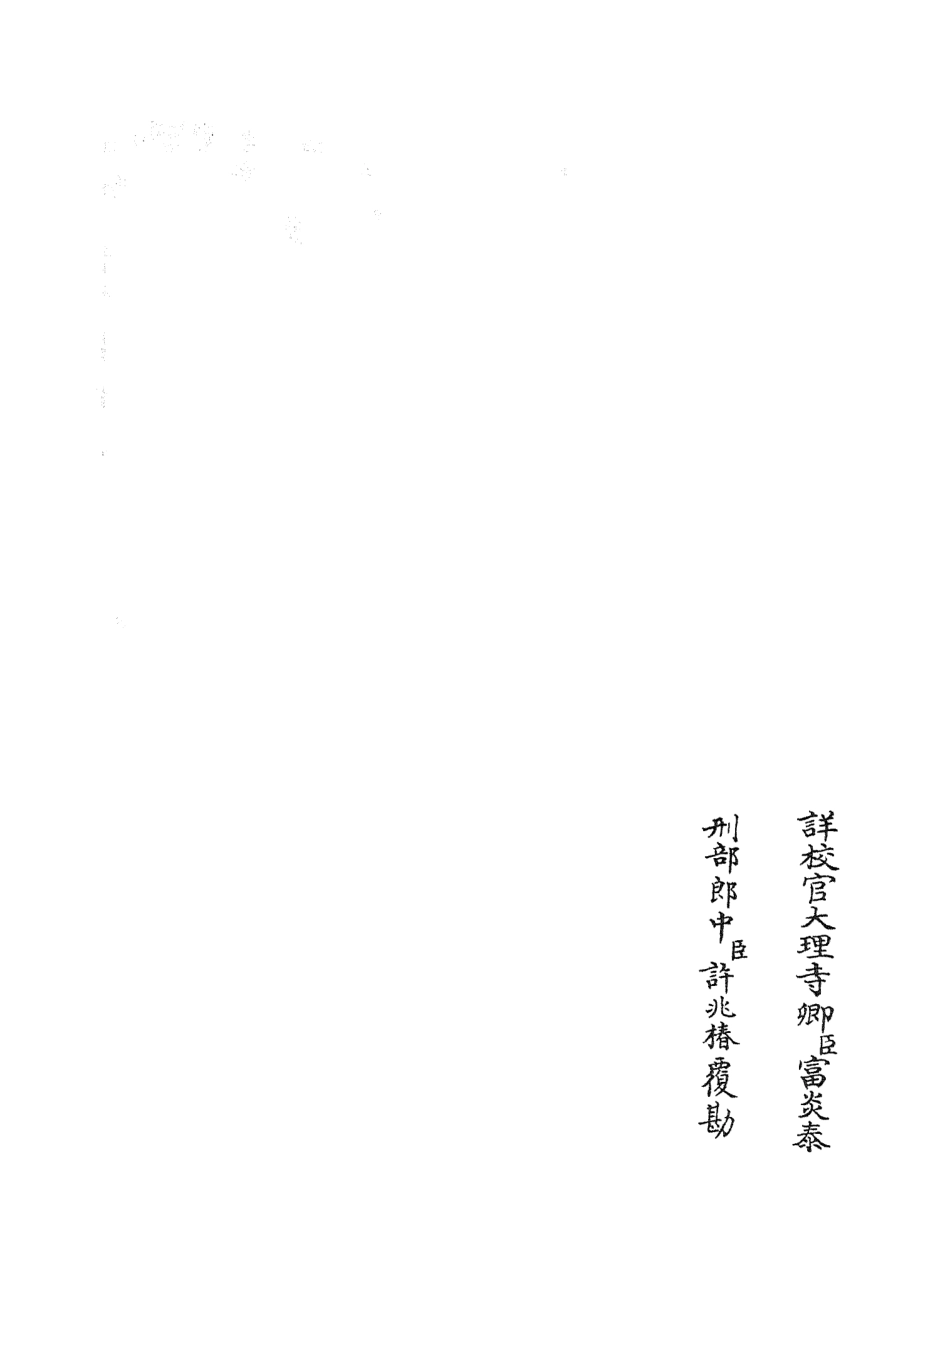 詳校官大理寺卿臣富炎泰
刑部郎中臣許兆椿覆勘